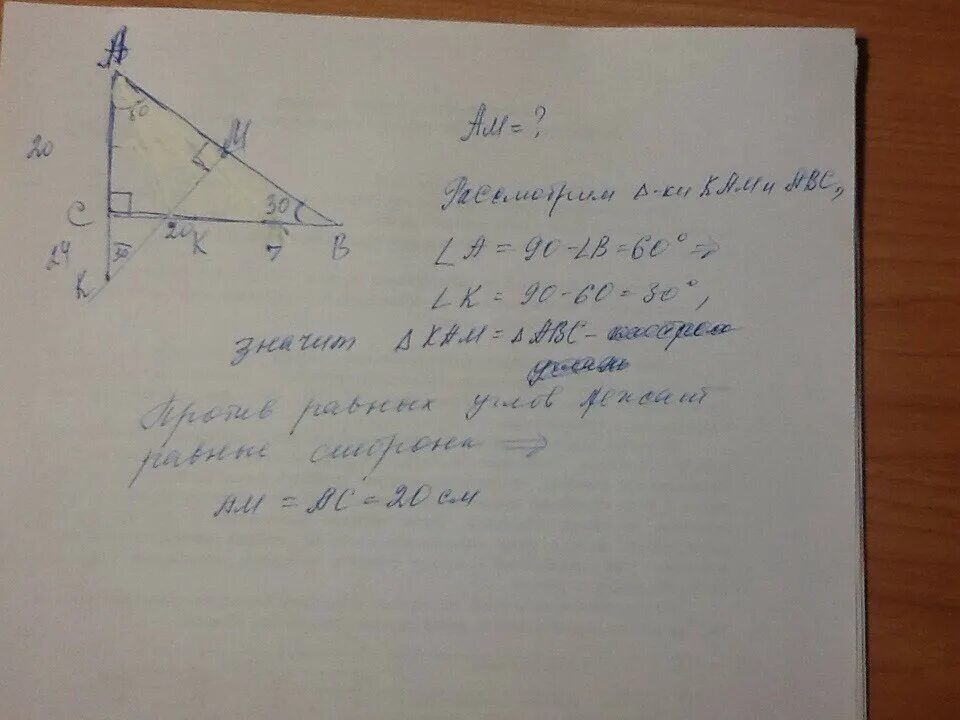 A
60
M
20
C
30
20
K
B
24
30
K
AM = ?
Рассмотрим Δ-ки KAM и ABC,
∠A = 90 - ∠B = 60° ⇒
∠K = 90 - 60 = 30°,
значит Δ KAM = Δ ABC -
Против равных углов лежат
равные стороны ⇒
AM = AC = 20 см